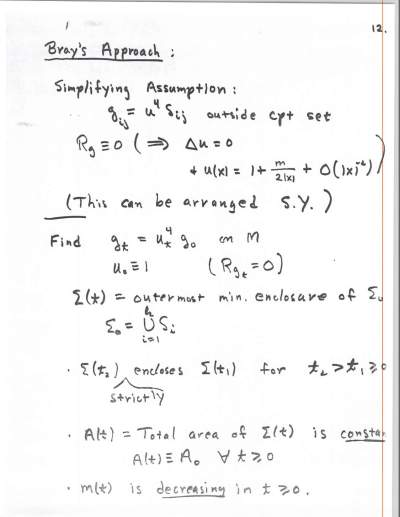 12.
Bray's Approach :
Simplifying Assumption :
g_ij = u^4 δ_ij outside cpt set
R_g ≡ 0 ( ⇒ Δu = 0
+ u(x) = 1 + m/2|x| + O(|x|^-2) )
(This can be arranged S.Y. )
Find g_t = u_t^4 g_0 on M
u_0 ≡ 1 ( R_g_t = 0 )
Σ(t) = outermost min. enclosure of Σ_0
Σ_0 = ∪_{i=1}^k S_i
· Σ(t_2) encloses Σ(t_1) for t_2 > t_1 ≥ 0
strictly
· A(t) = Total area of Σ(t) is constan
A(t) ≡ A_0 ∀ t ≥ 0
· m(t) is decreasing in t ≥ 0.